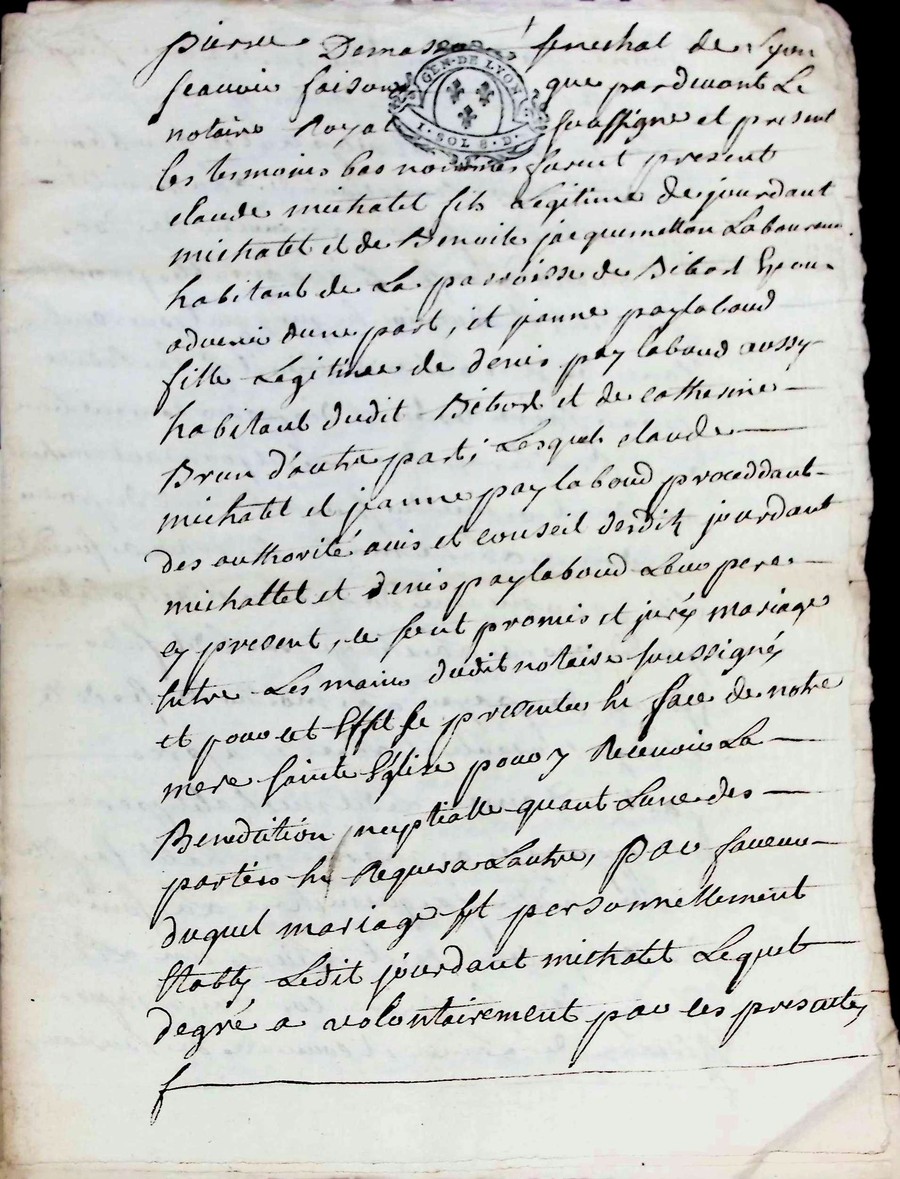 pierre Demasso senechal de Lyon
GEN · DE LYON
I · SOL 8 · D
scavoir faisons que pardevant Le
notaire Royal soussigné et present
les temoins bas nommes furent present
claude michalet fils Legitime de jourdant
michalet et de Benoite jacquemetton Laboureur
habitant de La parroisse de Bibost Epoux
advenir dune part, et jeanne paylaboud
fille Legitime de denis paylaboud aussy
habitant dudit Bibost et de catherine
Brun d'autre part; Lesquels claude
michalet et jeanne paylaboud proceddant
des authorité avis et conseil desdits jourdant
michallet et denis paylaboud Leur pere
cy present, se sont promis et jurés mariage
Entre Les mains dudit notaire soussignés
et pour cet Effet se presenter En face de notre
mere sainte Eglise pour y Recevoir La
Benediction nuptialle quant Lune des
parties En Requera Lautre, par faveur
duquel mariage Est personnellement
Etably Ledit jourdant michalet Lequel
degré a volontairement par ces presentes